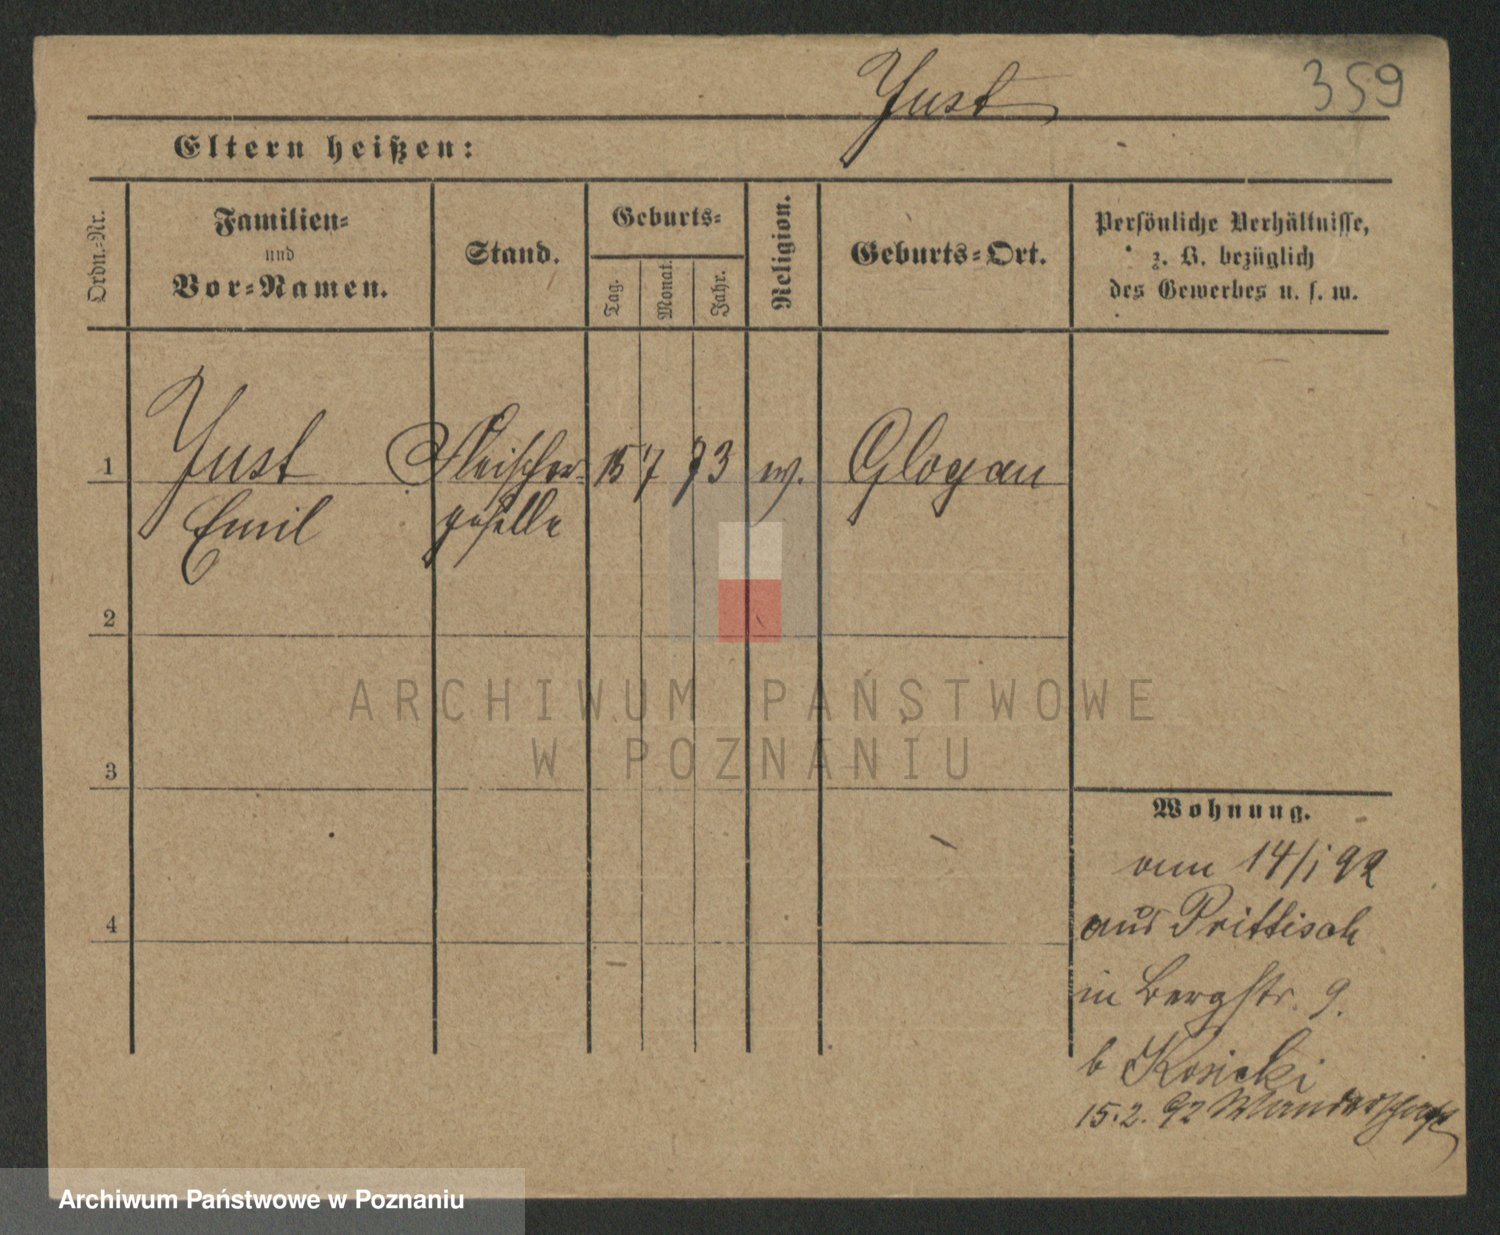 Just
359
Eltern heißen:
Ordn.-Nr.
Familien-
und
Vor-Namen.
Stand.
Geburts-
Tag.
Monat.
Jahr.
Religion.
Geburts-Ort.
Persönliche Verhältnisse,
z. B. bezüglich
des Gewerbes u. s. w.
1
Just
Emil
Fleischer-
geselle
15
7
73
Glogau
2
3
4
Wohnung.
14/1 92
aus Prittisch
in Bergstr. 9.
b Kosicki
15.2.92 Wanderschaft
ARCHIWUM PAŃSTWOWE
W POZNANIU
Archiwum Państwowe w Poznaniu